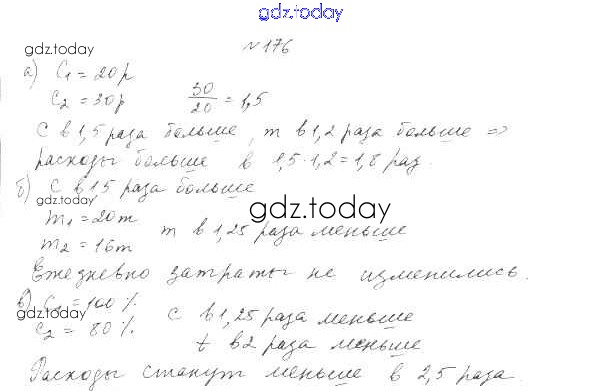 gdz.today
№176
gdz.today
а) C₁ = 20р
C₂ = 30р 30/20 = 1,5
C в 1,5 раза больше, m в 1,2 раза больше =>
расходы больше в 1,5·1,2=1,8 раз.
б) C в 1,5 раза больше
gdz.today
m₁ = 20т
gdz.today
m в 1,25 раза меньше
m₂ = 16т
Ежедневно затраты не изменились.
в) C₁ = 100%
gdz.today
C в 1,25 раза меньше
C₂ = 80%
t в 2 раза меньше
Расходы станут меньше в 2,5 раза.